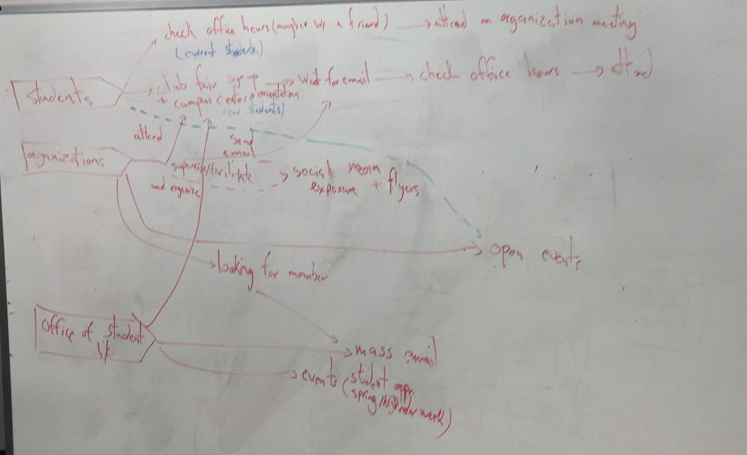 check office hours (maybe w/ a friend) → attend an organization meeting
(current students)
Students
club fair sign up → wait for email → check office hours → attend
+ campus center + orientation
(new students)
attend
send
email
organizations
supervise/facilitate
and organize
social media
exposure + flyers
open events
looking for member
Office of student
life
mass email
events (student appr.
spring/ week)